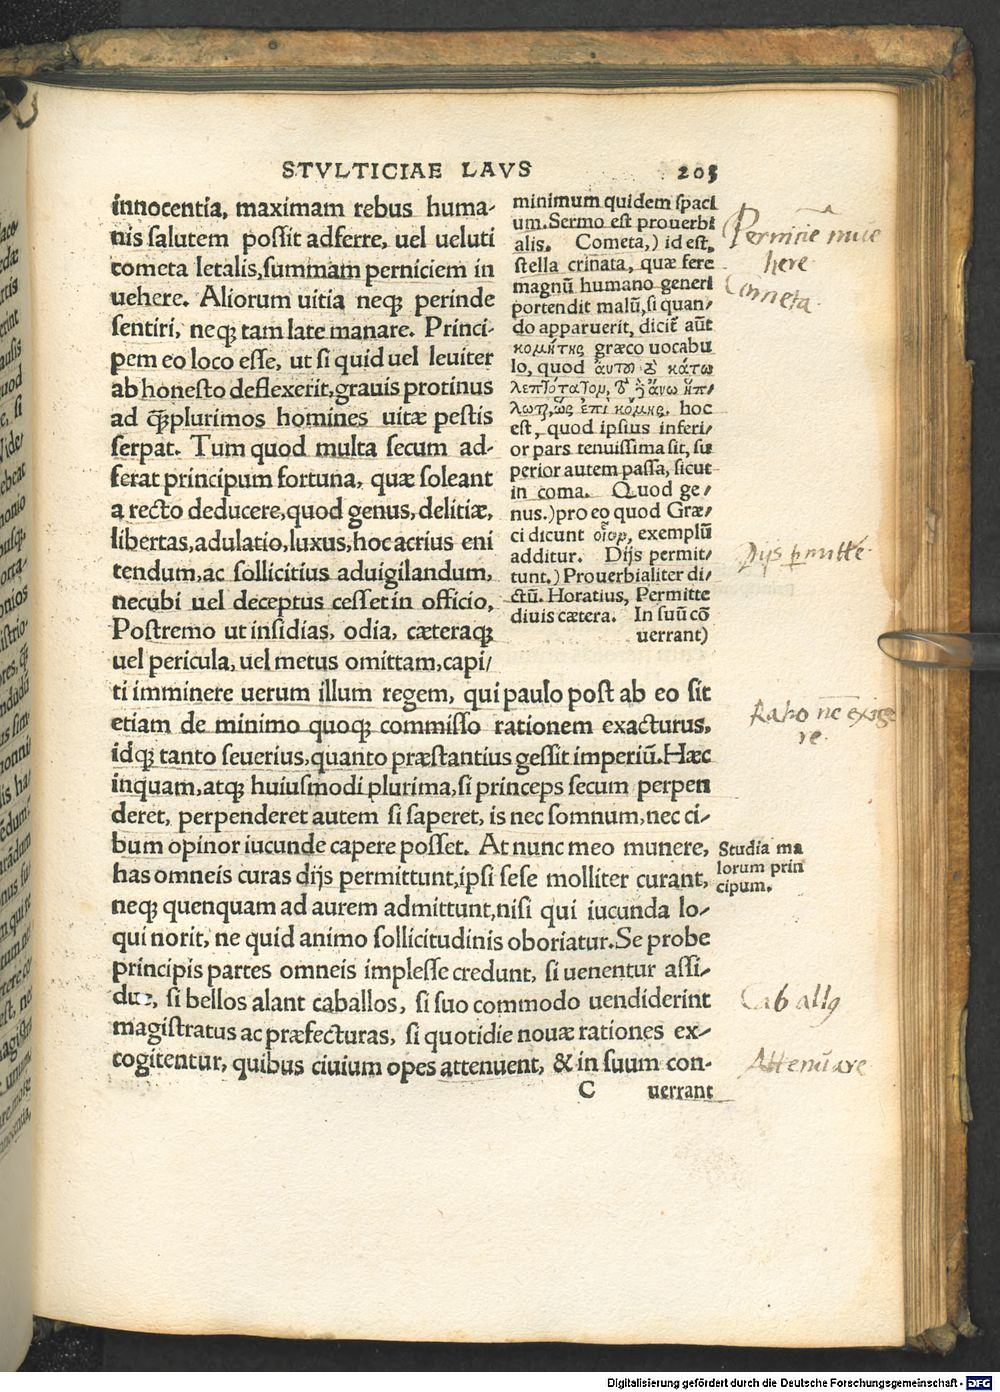 STVLTICIAE LAVS 203
innocentia, maximam rebus huma-
nis salutem possit adferre, uel ueluti
cometa letalis, summam perniciem in
uehere. Aliorum uitia neqꝫ perinde
sentiri, neqꝫ tam late manare. Princi-
pem eo loco esse, ut si quid uel leuiter
ab honesto deflexerit, grauis protinus
ad q̃ꝫplurimos homines uitæ pestis
serpat. Tum quod multa secum ad-
ferat principum fortuna, quæ soleant
a recto deducere, quod genus, delitiæ,
libertas, adulatio, luxus, hoc acrius eni
tendum, ac sollicitius aduigilandum,
necubi uel deceptus cesset in officio,
Postremo ut insidias, odia, cæteraqꝫ
uel pericula, uel metus omittam, capi/
ti imminere uerum illum regem, qui paulo post ab eo sit
etiam de minimo quoqꝫ commisso rationem exacturus,
idqꝫ tanto seuerius, quanto præstantius gessit imperiũ. Hæc
inquam, atqꝫ huiusmodi plurima, si princeps secum perpen
deret, perpenderet autem si saperet, is nec somnum, nec ci-
bum opinor iucunde capere posset. At nunc meo munere,
has omneis curas dijs permittunt, ipsi sese molliter curant,
neqꝫ quenquam ad aurem admittunt, nisi qui iucunda lo-
qui norit, ne quid animo sollicitudinis oboriatur. Se probe
principis partes omneis implesse credunt, si uenentur assi/
due, si bellos alant caballos, si suo commodo uendiderint
magistratus ac præfecturas, si quotidie nouæ rationes ex-
cogitentur, quibus ciuium opes attenuent, & in suum con-
C uerrant
minimum quidem spaci
um. Sermo est prouerbi
alis. Cometa,) id est,
stella crinata, quæ fere
magnũ humano generi
portendit malũ, si quan/
do apparuerit, dicit̃ aũt
κομήτης græco uocabu
lo, quod
hoc
est, quod ipsius inferi/
or pars tenuissima sit, su
perior autem passa, sicut
in coma. Quod ge/
nus.) pro eo quod Græ/
ci dicunt οἷον, exemplũ
additur. Dijs permit/
tunt.) Prouerbialiter di/
ctũ. Horatius, Permitte
diuis cætera. In suũ cõ
uerrant)
Studia ma
lorum prin
cipum.
Pernicie inue
here
Cometa
Dijs ꝑmittẽ
Ratione exige
re
Caballꝰ
Attenuare
Digitalisierung gefördert durch die Deutsche Forschungsgemeinschaft - DFG